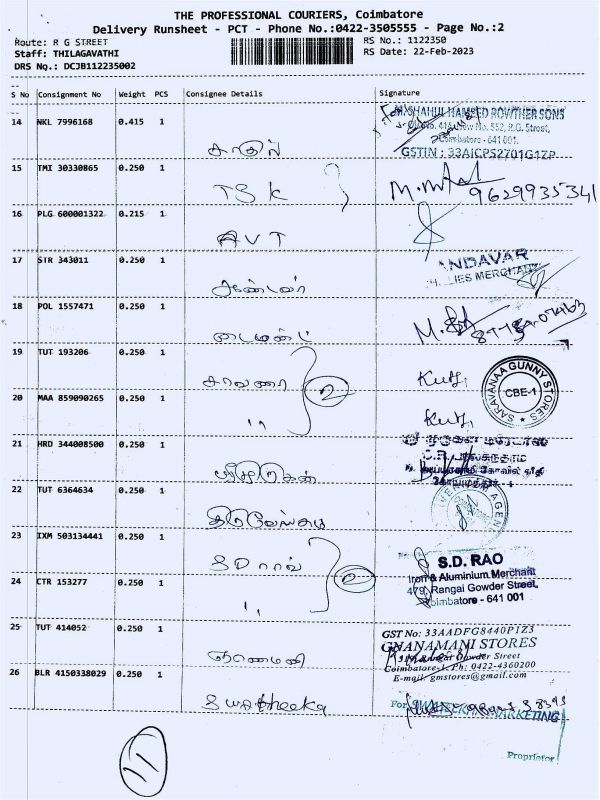 THE PROFESSIONAL COURIERS, Coimbatore
Delivery Runsheet - PCT - Phone No.:0422-3505555 - Page No.:2
Route: R G STREET
RS No.: 1122350
Staff: THILAGAVATHI
RS Date: 22-Feb-2023
DRS No.: DCJB112235002
S No Consignment No Weight PCS Consignee Details Signature
14 NKL 7996168 0.415 1
SHAHUL HAMEED ROWTHER SONS
552, R.G. Street,
Coimbatore - 641 001.
GSTIN : 33AICPS2701G1ZP
15 TMI 30330865 0.250 1
TSK
9629935341
16 PLG 600001322 0.215 1
AVT
17 STR 343011 0.250 1
ANDAVAR
ஆண்டவர்
18 POL 1557471 0.250 1
டைமண்ட்
19 TUT 193206 0.250 1
சரவணா
2
SARAVANAA GUNNY STORES
CBE-1
20 MAA 859090265 0.250 1
"
21 HRD 344008500 0.250 1
ஸ்ரீ முருகன்
22 TUT 6364634 0.250 1
AGEN
23 IXM 503134441 0.250 1
S D ராவ்
2
S.D. RAO
Iron & Aluminium Merchant
479, Rangai Gowder Street,
Coimbatore - 641 001
24 CTR 153277 0.250 1
"
25 TUT 414052 0.250 1
ஞானமணி
GST No: 33AADFG8440P1Z3
GNANAMANI STORES
Gowder Street
Coimbatore-1. Ph: 0422-4360200
E-mail: gmstores@gmail.com
26 BLR 4150338029 0.250 1
For
MARKETING
Proprietor
11